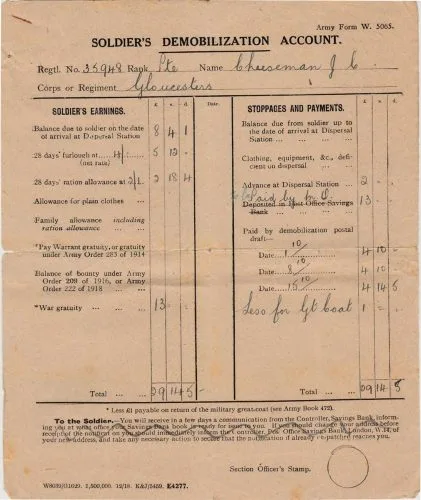 Army Form W. 5065.
SOLDIER'S DEMOBILIZATION ACCOUNT.
Regtl. No. 35948 Rank Pte Name Cheeseman J C
Corps or Regiment Gloucesters
SOLDIER'S EARNINGS. £ s. d. Date.
Balance due to soldier on the date of arrival at Dispersal Station 8 4 1
28 days' furlough at 4/- (net rate) 5 12 -
28 days' ration allowance at 2/1 2 18 4
Allowance for plain clothes
Family allowance including ration allowance
*Pay Warrant gratuity, or gratuity under Army Order 283 of 1914
Balance of bounty under Army Order 209 of 1916, or Army Order 222 of 1918
*War gratuity 13 - -
Total 29 14 5
STOPPAGES AND PAYMENTS. £ s. d.
Balance due from soldier up to the date of arrival at Dispersal Station
Clothing, equipment, &c., deficient on dispersal
Advance at Dispersal Station 2 -
Paid by M.O. 13 -
Deposited in Post Office Savings Bank
Paid by demobilization postal draft—
Date 1/10 4 10 -
Date 8/10 4 10 -
Date 15/10 4 14 5
Less for Gt Coat 1 - -
Total 29 14 5
* Less £1 payable on return of the military great-coat (see Army Book 472).
To the Soldier.—You will receive in a few days a communication from the Controller, Savings Bank, informing you at what office your Savings Bank book is ready for issue to you. If you should change your address before receipt of the notification you should immediately inform the Controller, Post Office Savings Bank, London, W.14, of your new address, and take any necessary action to secure that the notification if already re-patched reaches you.
Section Officer's Stamp.
1,500,000. 12/18. E4277.